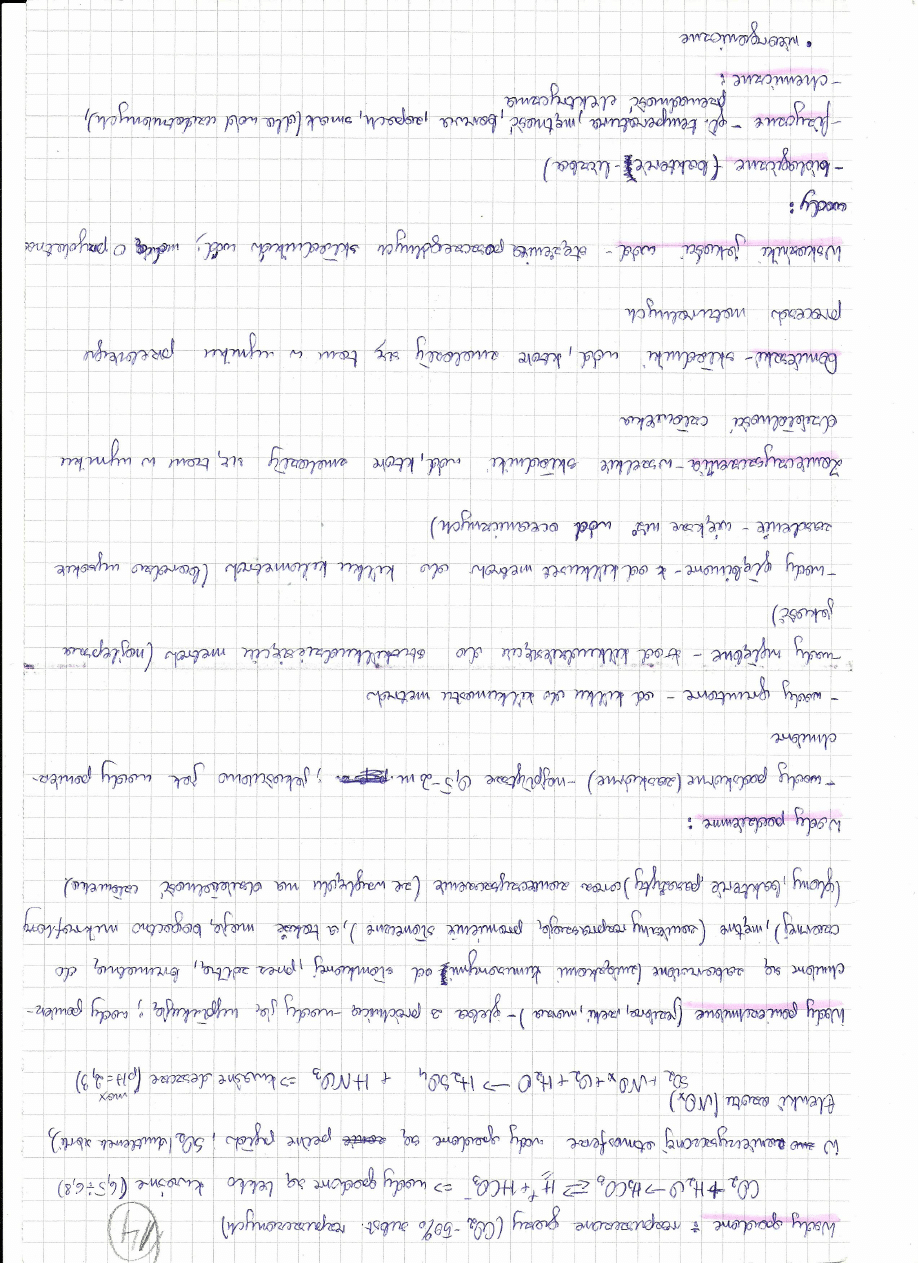 1/4
Wody opadowe - rozpuszczone gazy (CO₂ - 50% subst. rozpuszczonych)
CO₂ + H₂O → H₂CO₃ ⇄ H⁺ + HCO₃⁻ ⇒ wody opadowe są lekko kwaśne (6,5 ÷ 6,8)
W zanieczyszczonej atmosferze wody opadowe są pełne pyłów, SO₂ (dwutlenek siarki),
tlenki azotu (NOx)
SO₂ + NOx + O₂ + H₂O → H₂SO₄ + HNO₃ ⇒ kwaśne deszcze (pH = 2,3)
max
Wody powierzchniowe (jeziora, rzeki, morza) - gleba z próchnicą - wody ją wypłukują; wody powierz-
chniowe są zabarwione (związkami humusowymi od słomkowej, przez żółtą, brunatną, do
czarnej), mętne (zawiesiny rozpraszają promienie słoneczne), a także mają bogactwo mikroflory
(glony, bakterie, pasożyty) oraz zanieczyszczenie (ze względu na działalność człowieka)
Wody podziemne:
- wody podskórne (zaskórne) - najpłytsze 0,5-2 m; jakościowo jak wody powierz-
chniowe
- wody gruntowe - od kilku do kilkunastu metrów
- wody wgłębne - od kilkudziesięciu do stukilkudziesięciu metrów (najlepsza
jakość)
- wody głębinowe - od kilkuset metrów do kilku kilometrów (bardzo wysokie
zasolenie - większe niż wód oceanicznych)
Zanieczyszczenia - wszelkie składniki wód, które znalazły się tam w wyniku
działalności człowieka
Domieszki - składniki wód, które znalazły się tam w wyniku przebiegu
procesów naturalnych
Wskaźniki jakości wód - stężenia poszczególnych składników wód; mówią o przydatności
wody:
- biologiczne (bakterie - liczba)
- fizyczne - np. temperatura, mętność, barwa, zapach, smak (dla wód uzdatnionych),
przewodność elektryczna
- chemiczne:
• nieorganiczne